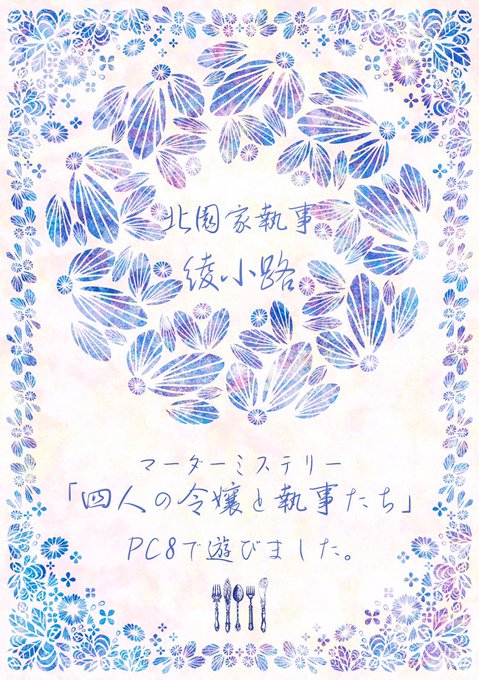 北園家執事
綾小路
マーダーミステリー
「四人の令嬢と執事たち」
PC8で遊びました。